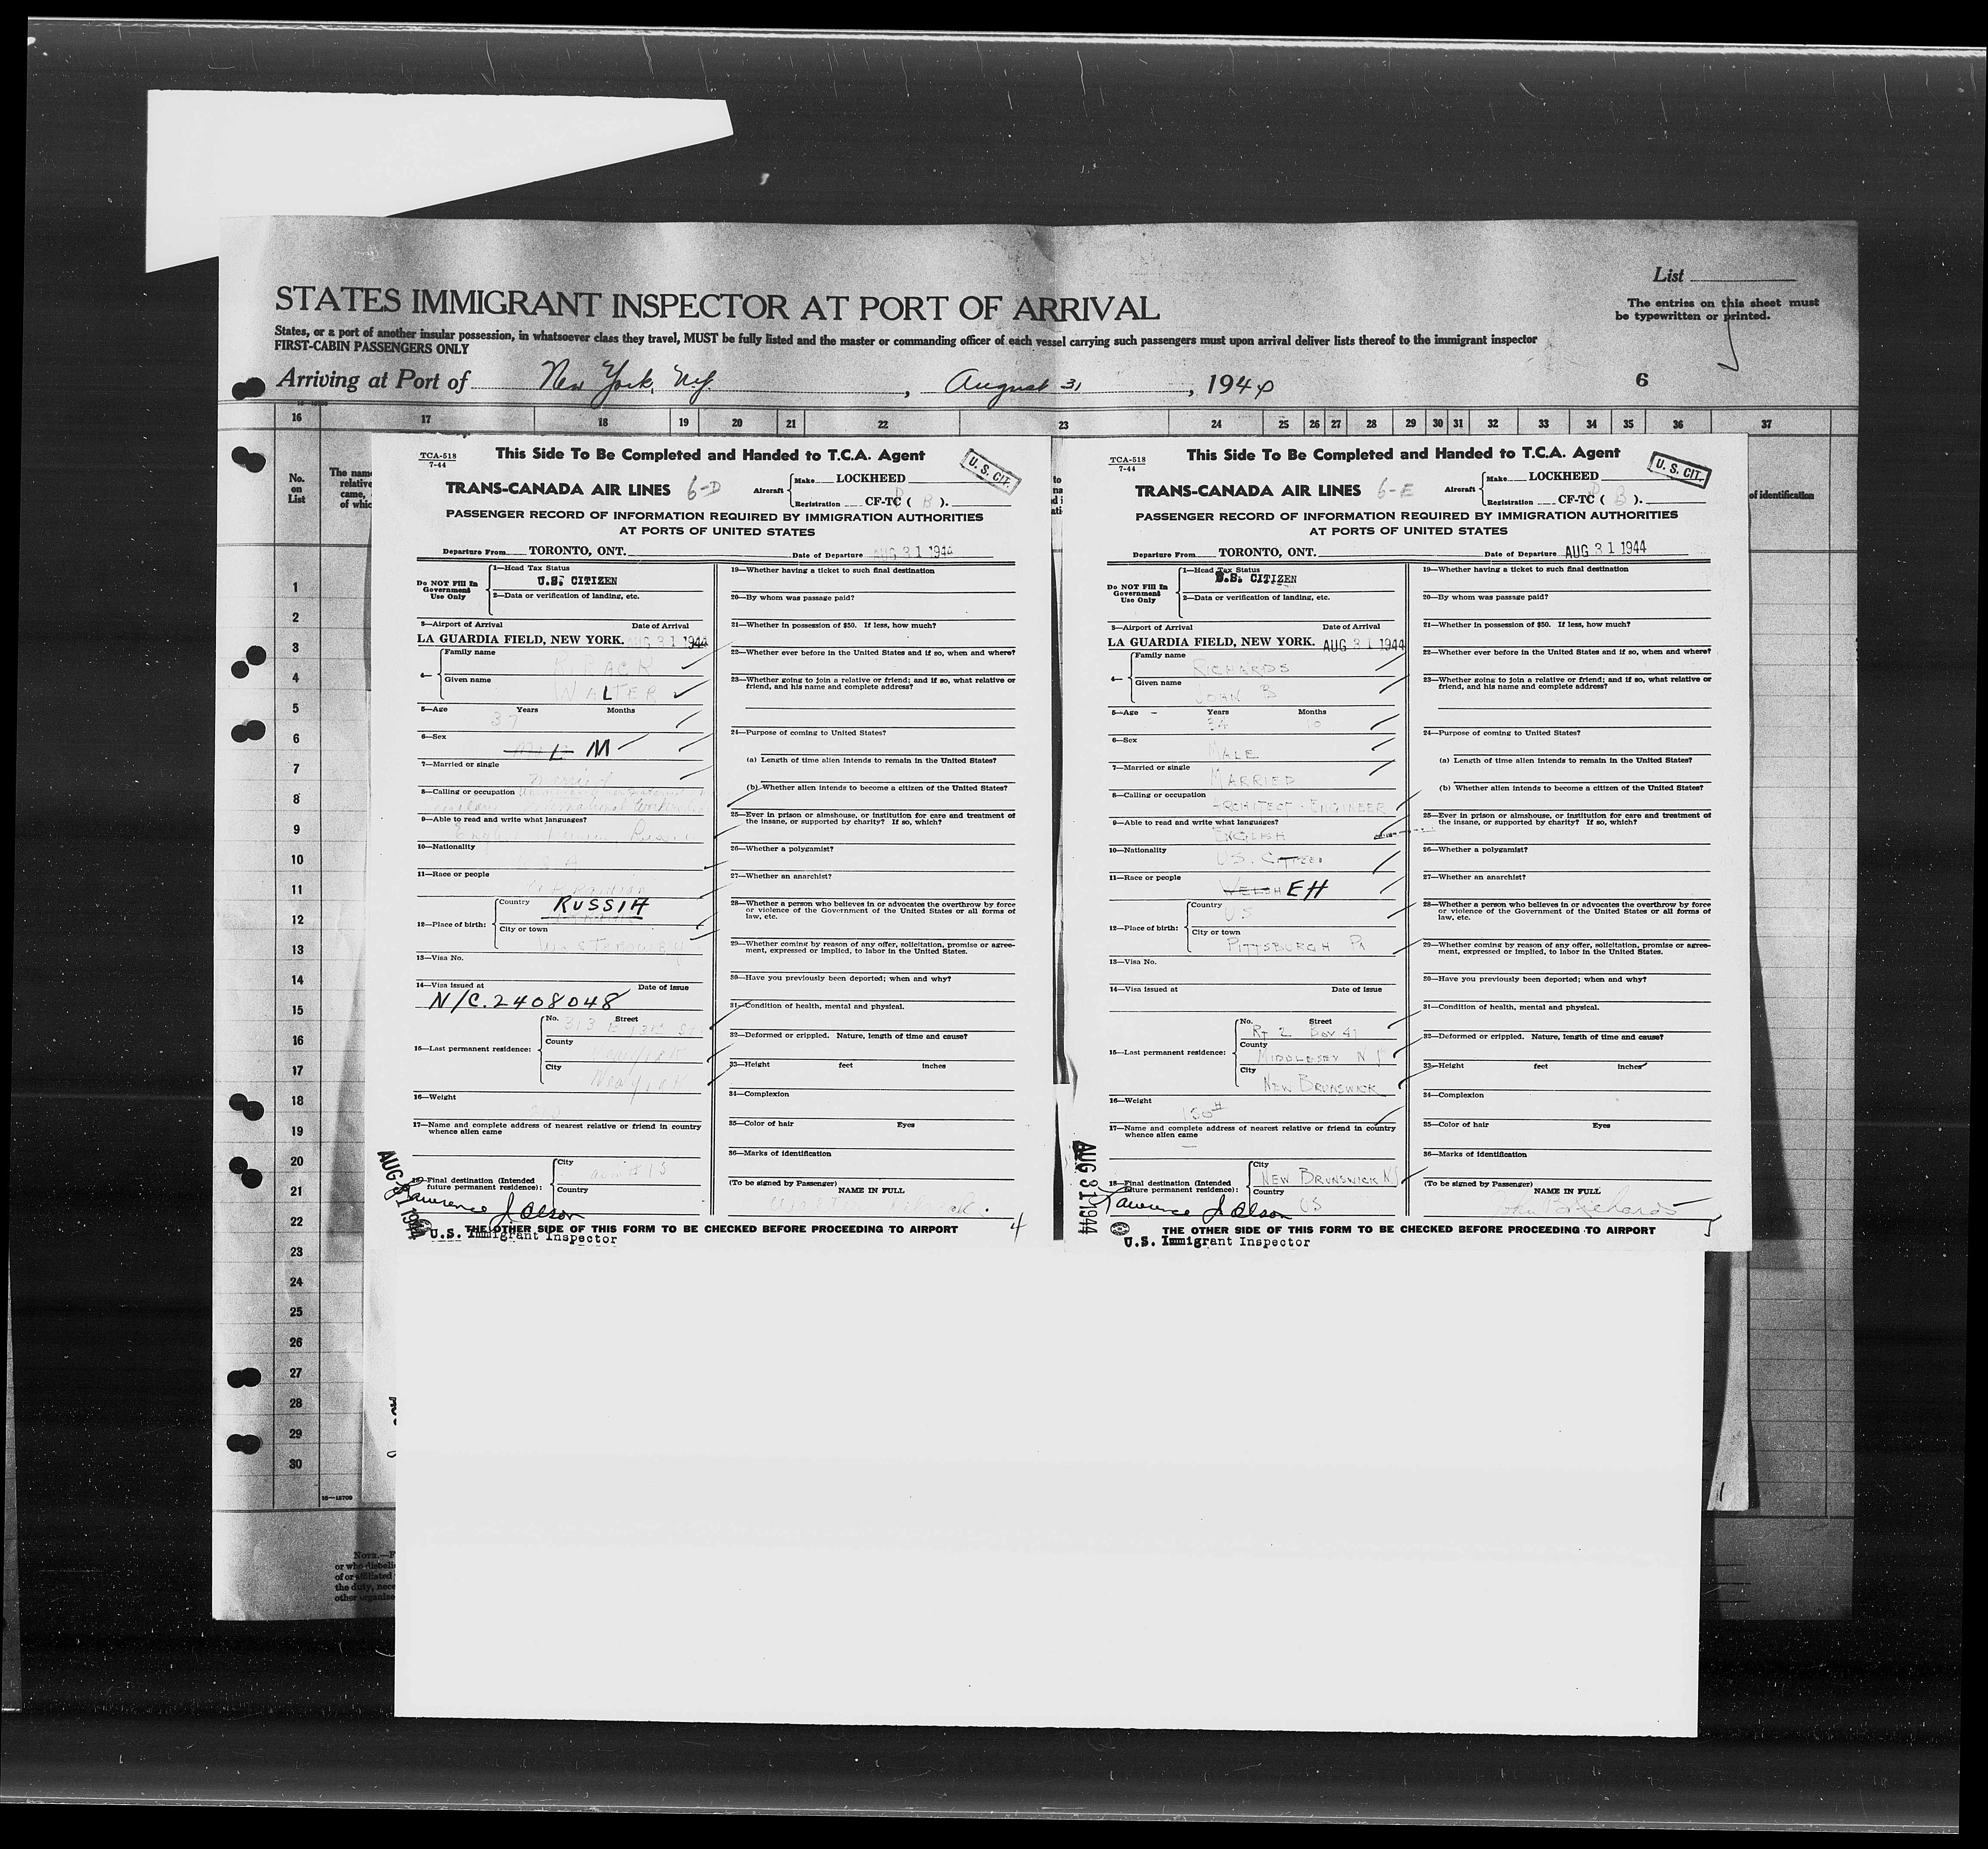 List
STATES IMMIGRANT INSPECTOR AT PORT OF ARRIVAL
The entries on this sheet must
be typewritten or printed.
States, or a port of another insular possession, in whatsoever class they travel, MUST be fully listed and the master or commanding officer of each vessel carrying such passengers must upon arrival deliver lists thereof to the immigrant inspector
FIRST-CABIN PASSENGERS ONLY
Arriving at Port of New York, N.Y. , August 31 , 1944
6
16 17 18 19 20 21 22 23 24 25 26 27 28 29 30 31 32 33 34 35 36 37
No.
on
List
The name
relative
came,
of whic
of identification
1
2
3
4
5
6
7
8
9
10
11
12
13
14
15
16
17
18
19
20
21
22
23
24
25
26
27
28
29
30
TCA-518
7-44
This Side To Be Completed and Handed to T.C.A. Agent
U. S. CIT.
TRANS-CANADA AIR LINES 6-D
Aircraft
Make LOCKHEED
Registration CF-TC ( B ).
PASSENGER RECORD OF INFORMATION REQUIRED BY IMMIGRATION AUTHORITIES
AT PORTS OF UNITED STATES
Departure From TORONTO, ONT. Date of Departure AUG 31 1944
Do NOT Fill In
Government
Use Only
1—Head Tax Status
U.S. CITIZEN
2—Data or verification of landing, etc.
3—Airport of Arrival Date of Arrival
LA GUARDIA FIELD, NEW YORK. AUG 31 1944
4—
Family name
Given name WALTER
5—Age Years Months
37
6—Sex M
7—Married or single
Married
8—Calling or occupation
9—Able to read and write what languages?
10—Nationality
U S A
11—Race or people
12—Place of birth:
Country RUSSIA
City or town
13—Visa No.
14—Visa issued at Date of issue
N/C. 2408048
15—Last permanent residence:
No. Street
313 E 13th St
County
New York
City
New York
16—Weight
17—Name and complete address of nearest relative or friend in country
whence alien came
18—Final destination (Intended
future permanent residence):
City
as in # 15
Country
Lawrence J. Olson
AUG 31 1944
U.S. Immigrant Inspector
19—Whether having a ticket to such final destination
20—By whom was passage paid?
21—Whether in possession of $50. If less, how much?
22—Whether ever before in the United States and if so, when and where?
23—Whether going to join a relative or friend; and if so, what relative or
friend, and his name and complete address?
24—Purpose of coming to United States?
(a) Length of time alien intends to remain in the United States?
(b) Whether alien intends to become a citizen of the United States?
25—Ever in prison or almshouse, or institution for care and treatment of
the insane, or supported by charity? If so, which?
26—Whether a polygamist?
27—Whether an anarchist?
28—Whether a person who believes in or advocates the overthrow by force
or violence of the Government of the United States or all forms of
law, etc.
29—Whether coming by reason of any offer, solicitation, promise or agree-
ment, expressed or implied, to labor in the United States.
30—Have you previously been deported; when and why?
31—Condition of health, mental and physical.
32—Deformed or crippled. Nature, length of time and cause?
33—Height feet inches
34—Complexion
35—Color of hair Eyes
36—Marks of identification
(To be signed by Passenger)
NAME IN FULL
THE OTHER SIDE OF THIS FORM TO BE CHECKED BEFORE PROCEEDING TO AIRPORT
4
TCA-518
7-44
This Side To Be Completed and Handed to T.C.A. Agent
U. S. CIT.
TRANS-CANADA AIR LINES 6-E
Aircraft
Make LOCKHEED
Registration CF-TC ( B ).
PASSENGER RECORD OF INFORMATION REQUIRED BY IMMIGRATION AUTHORITIES
AT PORTS OF UNITED STATES
Departure From TORONTO, ONT. Date of Departure AUG 31 1944
Do NOT Fill In
Government
Use Only
1—Head Tax Status
U.S. CITIZEN
2—Data or verification of landing, etc.
3—Airport of Arrival Date of Arrival
LA GUARDIA FIELD, NEW YORK. AUG 31 1944
4—
Family name
RICHARDS
Given name
JOHN B
5—Age Years Months
34 10
6—Sex
MALE
7—Married or single
MARRIED
8—Calling or occupation
ARCHITECT - ENGINEER
9—Able to read and write what languages?
ENGLISH
10—Nationality
U.S. CITIZEN
11—Race or people
WELSH EH
12—Place of birth:
Country
US
City or town
PITTSBURGH PA
13—Visa No.
14—Visa issued at Date of issue
15—Last permanent residence:
No. Street
RT 2 BOX 41
County
MIDDLESEX N J
City
NEW BRUNSWICK
16—Weight
150#
17—Name and complete address of nearest relative or friend in country
whence alien came
18—Final destination (Intended
future permanent residence):
City
NEW BRUNSWICK NJ
Country
US
Lawrence J. Olson
AUG 31 1944
U.S. Immigrant Inspector
19—Whether having a ticket to such final destination
20—By whom was passage paid?
21—Whether in possession of $50. If less, how much?
22—Whether ever before in the United States and if so, when and where?
23—Whether going to join a relative or friend; and if so, what relative or
friend, and his name and complete address?
24—Purpose of coming to United States?
(a) Length of time alien intends to remain in the United States?
(b) Whether alien intends to become a citizen of the United States?
25—Ever in prison or almshouse, or institution for care and treatment of
the insane, or supported by charity? If so, which?
26—Whether a polygamist?
27—Whether an anarchist?
28—Whether a person who believes in or advocates the overthrow by force
or violence of the Government of the United States or all forms of
law, etc.
29—Whether coming by reason of any offer, solicitation, promise or agree-
ment, expressed or implied, to labor in the United States.
30—Have you previously been deported; when and why?
31—Condition of health, mental and physical.
32—Deformed or crippled. Nature, length of time and cause?
33—Height feet inches
34—Complexion
35—Color of hair Eyes
36—Marks of identification
(To be signed by Passenger)
NAME IN FULL
John B Richards
THE OTHER SIDE OF THIS FORM TO BE CHECKED BEFORE PROCEEDING TO AIRPORT
5
16—13700
NOTE.—F
or who disbeli
of or affiliated
the duty, nece
other organize